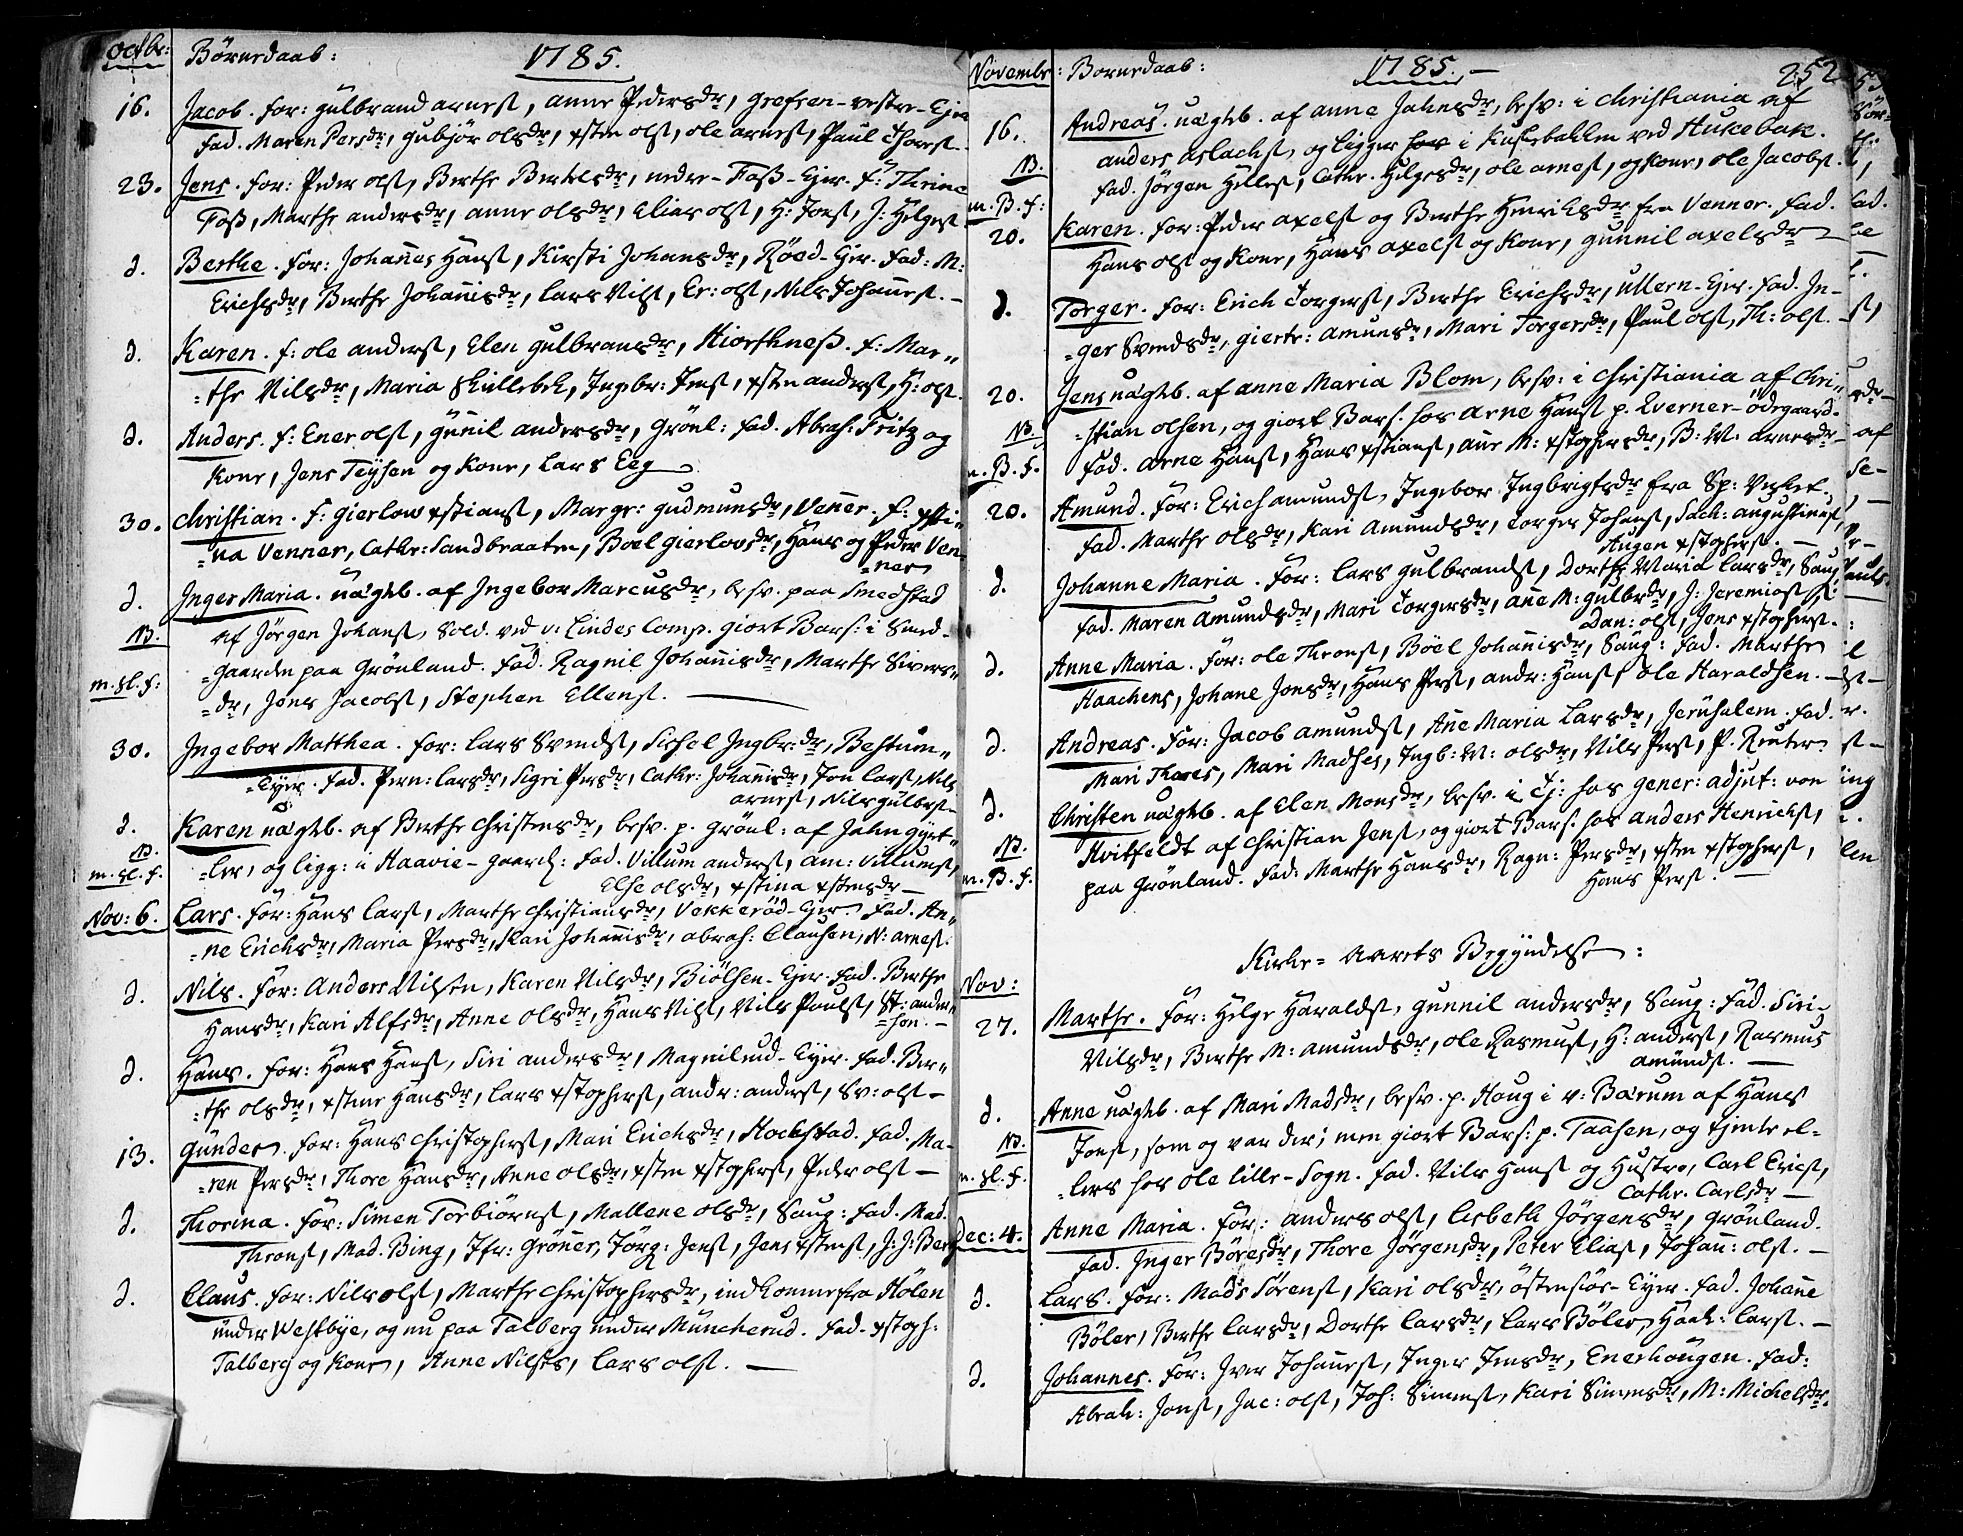 Octbr: Børnedaab: 1785.
16. Jacob. For: Gulbrand Arnes., Anne Pedersdr, Grefsen-vestre-Ejer
Fad. Maren Persdr, Gubjør Olsdr, Xsten Ols., Ole Arnes., Paul Thores.
23. Jens. For: Peder Ols., Berthe Bertelsdr, nedre-Foss-Ejer. F: Thrine
Foss, Marthe Andersdr, Anne Olsdr, Elias Ols., H: Jons., J: Helges.
d. Berthe. For: Johannes Hans., Kirsti Johansdr, Røed-Ejer. Fad: M:
Erichsdr, Berthe Johannisdr, Lars Nils., Er: Ols., Nils Johannes. –
d. Karen. F: Ole Anders., Elen Gulbransdr, Hiorthness. F: Mar-
-the Nilsdr, Maria Skillebek, Ingebr: Jens., Xsten Anders., H: Ols.
d. Anders. F: Ener Ols., Gunil Andersdr, Grønl: Fad. Abrah: Fritz og
Kone, Jens Teysen og Kone, Lars Eeg
30. Christian. F: Gierlow Xstians., Margr: Gudmunsdr, Venner. F: Xsti-
-na Venner, Cathr: Sandbraaten, Boel Gierlovsdr, Hans og Peder Ven-
-ner
d. Inger Maria. uægtb. af Ingebor Marcusdr, besv. paa Smedstad
NB. af Jørgen Johans., Sold. ved v: Lindes Comp. giort Bars: i Smed-
m.sl.f: -gaarden paa Grønland. Fad. Ragnil Johannisdr, Marthe Sivers-
-dr, Jens Jacobs., Stephen Ellens.
30. Ingebor Matthea. For: Lars Svends., Sissel Ingbr:dr, Bestum-
-Ejer. Fad. Pern: Larsdr, Sigri Persdr, Cathr: Johannisdr, Jon Lars., Nils
Arnes., Nils Gulbrs.
d. Karen uægtb. af Berthe Christensdr, besv. p. Grønl: af Jahn Gyrt-
NB. m.sl.f. -ler, og ligg: i Haavie-gaard: Fad. Villum Anders., Am: Villums.,
Else Olsdr, Xstina Xstensdr –
Nov: 6. Lars. For: Hans Lars., Marthe Christiansdr, Vekkerød-Ejer. Fad. An-
-ne Erichsdr, Maria Persdr, Kari Johannisdr, Abrah: Clausen, N: Arnes.
d. Nils. For: Anders Nilsen, Karen Nilsdr, Biølsen-Ejer. Fad. Berthe
Hansdr, Kari Alfsdr, Anne Olsdr, Hans Nils., Nils Pouls., St: Ander-
-sen. –
d. Hans. For: Hans Hans., Siri Andersdr, Magnilrud-Ejer. Fad. Ber-
-the Olsdr, Xstine Hansdr, Lars Xstophers., Andr: Anders., Sv: Ols. –
13. Gunder. For: Hans Christophers., Mari Erichsdr, Hockstad. Fad. Ma-
-ren Persdr, Thore Hansdr, Anne Olsdr, Xsten Xstophers., Peder Ols. –
d. Thorina. For: Simen Torbiørns., Mallene Olsdr, Saug: Fad. Mad.
Throns., Mad. Bing, Jfr: Grøner, Jørg: Jens., Jens Xstens., J: J: Berg
d. Claus. For: Nils Ols., Marthe Christophersdr, indkomne fra Hølen
under Westbye, og nu paa Talberg under Muncherud. Fad. Xstoph:
Talberg og Kone, Anne Nilsds, Lars Ols. –
Novembr: Børnedaab: 1785. – 252
16. Andreas. uægtb. af Anne Jahnsdr, besv: i Christiania af
NB. Anders Aslachs., og ligger i Kuskebakken ved Hukebak.
m.B.f: Fad. Jørgen Helles., Cathr. Helgesdr, Ole Arnes., og Kone, Ole Jacobs.
20. Karen. For: Peder Axels. og Berthe Henriksdr fra Venner. Fad.
Hans Ols. og Kone, Hans Axels. og Kone, Gunnil Axelsdr
d. Torger. For: Erich Torgers., Berthe Erichsdr, Ullern-Ejer. Fad. In-
-ger Svendsdr, Giertr: Amunsdr, Mari Torgersdr, Paul Ols., Th: Ols.
20. Jens uægtb. af Anne Maria Blom, besv: i Christiania af Chri-
NB. -stian Olsen, og giort Bars. hos Arne Hans. p. Qverner-ødegaard.
m.B.f. Fad. Arne Hans., Hans Xstians., Ane M: Xstophersdr, B: M. Arnesdr
20. Amund. For: Erich Amunds., Ingebor Ingbrigtsdr fra Sp: Verket.
Fad. Marthe Olsdr, Kari Amundsdr, Torger Johans., Zach: Augustinus.,
Augen Xstophers. –
d. Johanne Maria. For: Lars Gulbrands., Dorthe Maria Larsdr, Saug
Fad. Maren Amundsdr, Mari Torgersdr, Ane M: Gulbrdr, J: Jeremias.,
Dan: Ols., Jens Xstophers. –
d. Anne Maria. For: Ole Throns., Bøel Johannisdr, Saug: Fad. Marthe
Haachens, Johane Jonsdr, Hans Pers., Andr: Hans., Ole Haraldsen. –
d. Andreas. For: Jacob Amunds., Ane Maria Larsdr, Jerusalem. Fad.
Mari Thores, Mari Madses, Ingb: M: Olsdr, Nils Pers., P. Reuter
d. Christen uægtb. af Elen Monsdr, besv. i Tj: hos Gener: Adjut: von
NB. Hvitfeldt af Christian Jens., og giort Bars. hos Anders Henrichs.,
m.B.f. paa Grønland. Fad: Marthe Hansdr, Ragn: Persdr, Xsten Xstophers.,
Hans Pers. –
Kirke-Aarets Begyndelse:
Nov: 27. Marthe. For: Helge Haralds., Gunnil Andersdr, Saug: Fad. Siri
Nilsdr, Berthe M: Amundsdr, Ole Rasmus., H: Anders., Rasmus
Amunds. –
d. Anne uægtb. af Mari Madsdr, besv. p. Houg i v: Bærum af Hans
NB. Jons., som og var der; men giort Bars: p. Taasen, og tjente el-
m.sl.f. -lers hos Ole Lille-Sogn. Fad. Nils Hans. og Hustro, Carl Erics.,
Cathr. Carlsdr –
Dec: 4. Anne Maria. For: Anders Ols., Lisbeth Jørgensdr, Grønland.
Fad. Inger Børesdr, Thore Jørgensdr, Peter Elias., Johan: Ols. –
d. Lars. For: Mads Sørens., Kari Olsdr, Østensiøe-Ejer. Fad. Johane
Bøler, Berthe Larsdr, Dorthe Larsdr, Lars Bøler, Haak: Lars. –
d. Johannes. For: Iver Johannes., Inger Jensdr, Enerhougen. Fad:
Abrah: Jons., Jac: Ols., Joh: Simens., Kari Simensdr, M: Michelsdr.